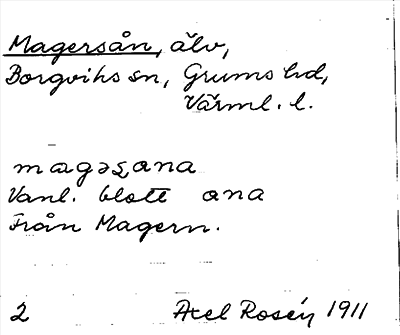 Magersån, älv,
Borgviks sn, Grums hd,
Värml. l.
magəʂana
Vanl. blott ana
Från Magern.
2 Axel Rosén 1911